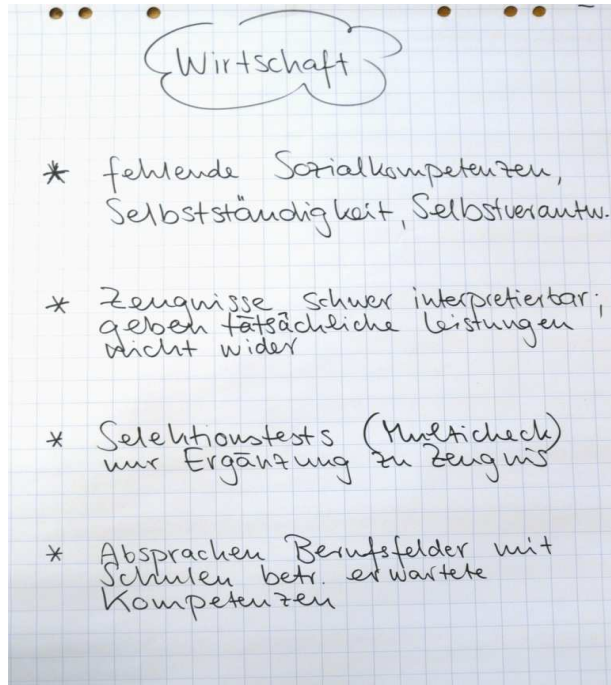 Wirtschaft
* fehlende Sozialkompetenzen,
Selbstständigkeit, Selbstverantw.
* Zeugnisse schwer interpretierbar;
geben tatsächliche Leistungen
nicht wider
* Selektionstests (Multicheck)
nur Ergänzung zu Zeugnis
* Absprachen Berufsfelder mit
Schulen betr. erwartete
Kompetenzen